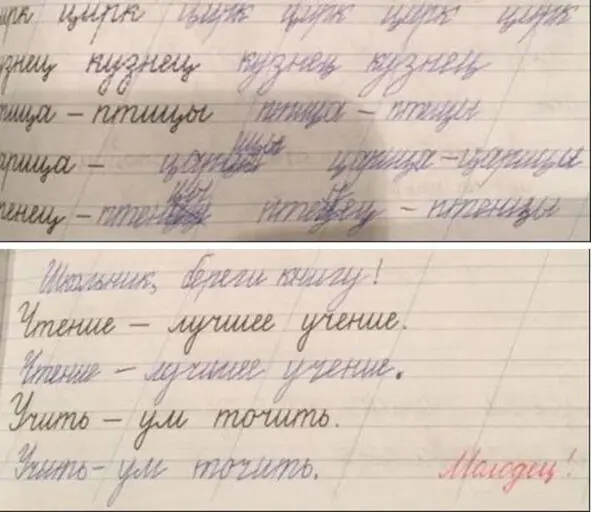 цирк цирк цирк цирк цирк цирк
кузнец кузнец кузнец кузнец
птица – птицы птица – птицы
царица – царица – царицы
птенец – птенец – птенцы
Школьник, береги книгу!
Чтение – лучшее учение.
Чтение – лучшее учение.
Учить – ум точить.
Учить – ум точить. Молодец!